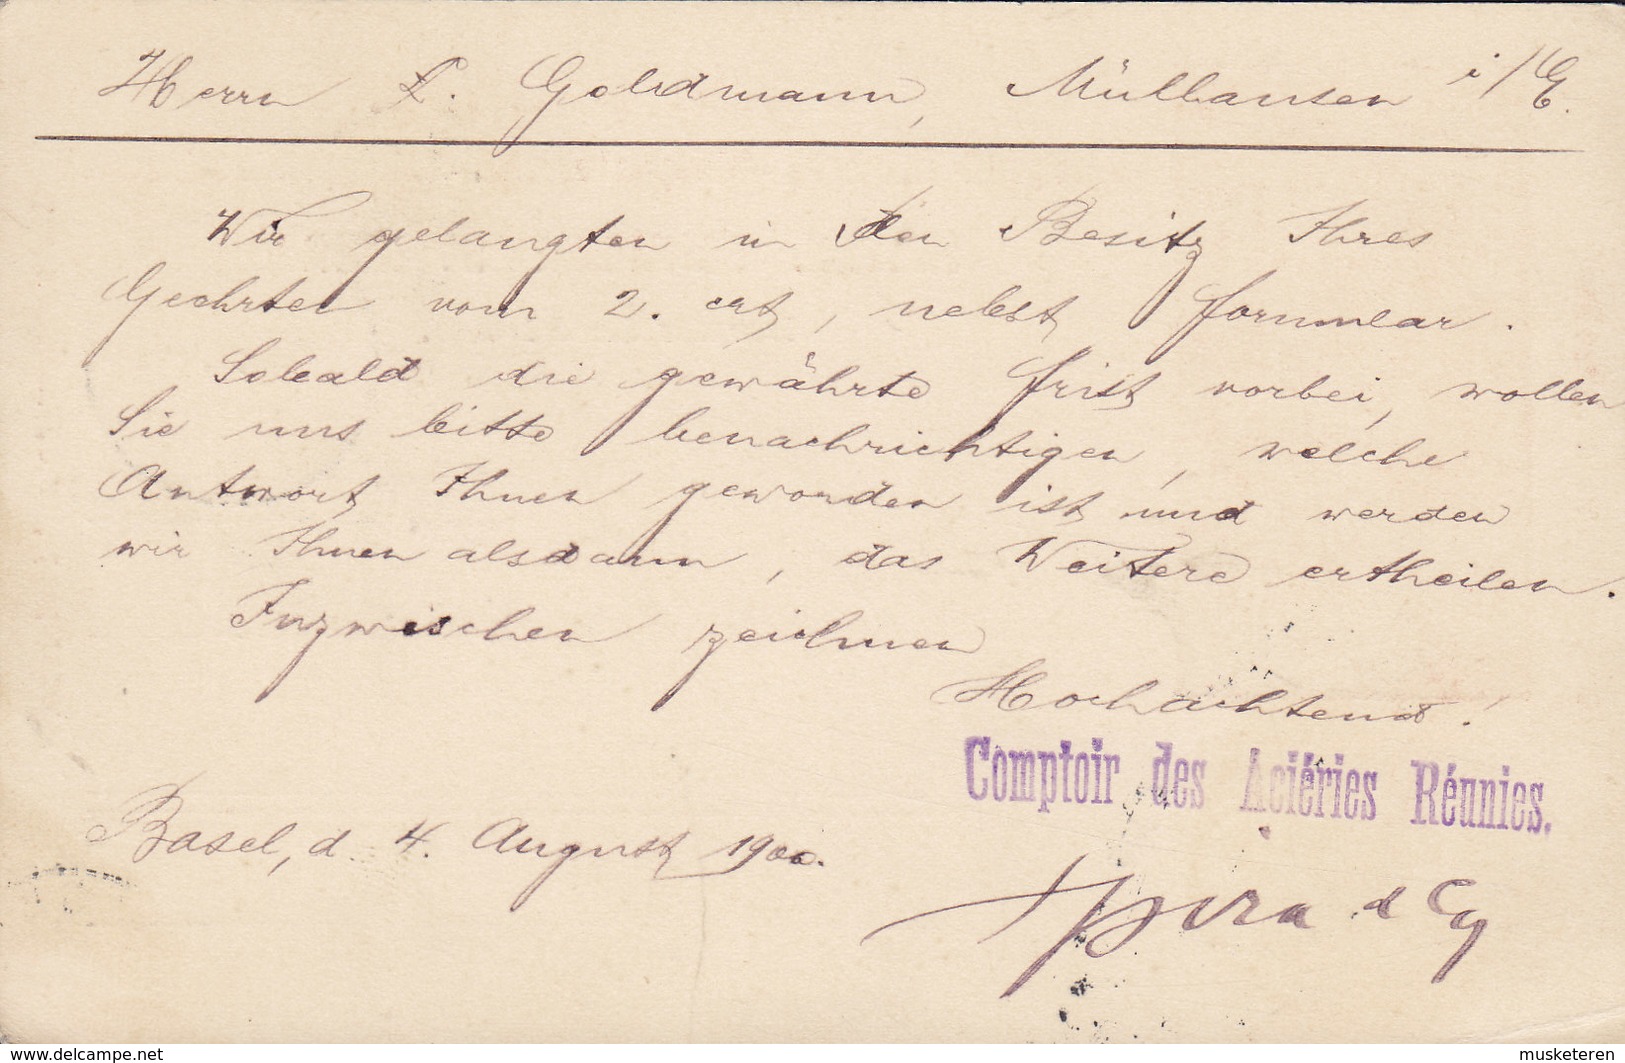 Herrn L. Goldmann, Mülhausen i/E.
Wir gelangten in den Besitz Ihres
Geehrten vom 2. crt, nebst Formular.
Sobald die gewährte Frist vorbei, wollen
Sie uns bitte benachrichtigen, welche
Antwort Ihnen geworden ist und werden
wir Ihnen alsdann, das Weitere ertheilen.
Inzwischen zeichnen
Hochachtend!
Comptoir des Aciéries Réunies.
Basel, d. 4. August 1900.
& Cy
www.delcampe.net
musketeren